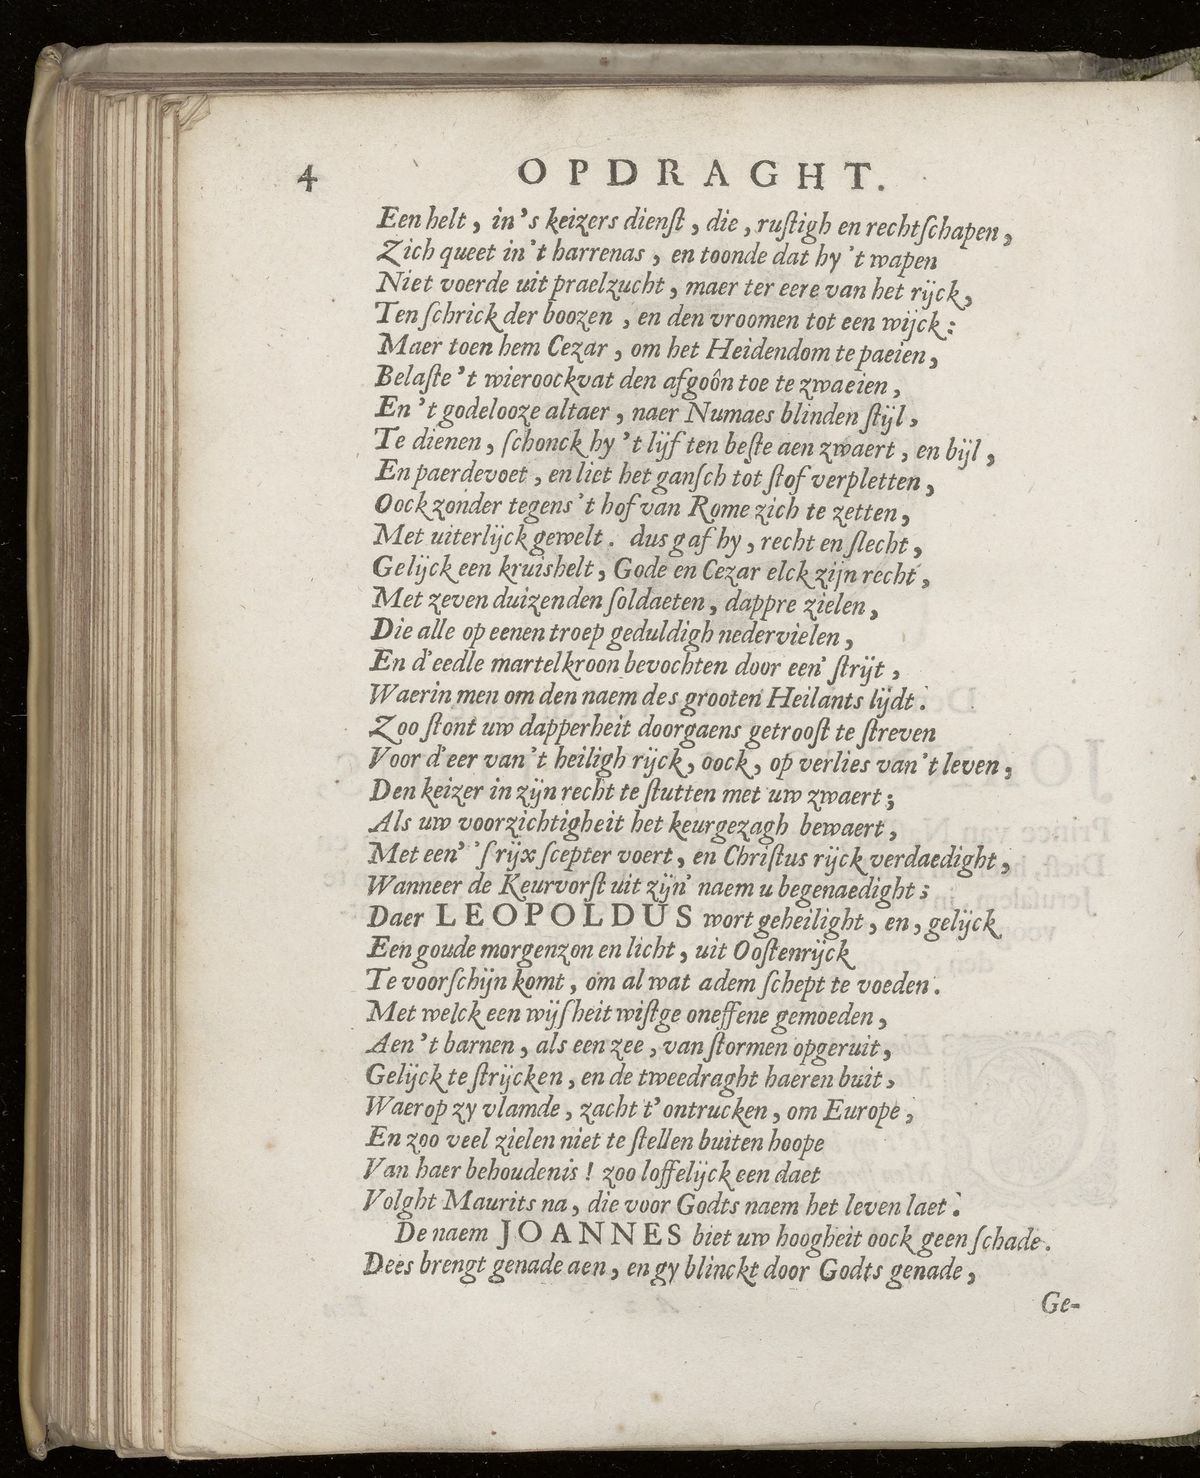 4 OPDRAGHT.
Een helt, in 's keizers dienſt, die, ruſtigh en rechtſchapen,
Zich queet in 't harrenas, en toonde dat hy 't wapen
Niet voerde uit praelzucht, maer ter eere van het rijck,
Ten ſchrick der boozen, en den vroomen tot een wijck:
Maer toen hem Cezar, om het Heidendom te paeien,
Belaſte 't wieroockvat den afgoôn toe te zwaeien,
En 't godelooze altaer, naer Numaes blinden ſtijl,
Te dienen, ſchonck hy 't lijf ten beſte aen zwaert, en bijl,
En paerdevoet, en liet het ganſch tot ſtof verpletten,
Oock zonder tegens 't hof van Rome zich te zetten,
Met uiterlijck gewelt. dus gaf hy, recht en ſlecht,
Gelijck een kruishelt, Gode en Cezar elck zijn recht,
Met zeven duizenden ſoldaeten, dappre zielen,
Die alle op eenen troep geduldigh nedervielen,
En d'eedle martelkroon bevochten door een' ſtrijt,
Waerin men om den naem des grooten Heilants lijdt.
Zoo ſtont uw dapperheit doorgaens getrooſt te ſtreven
Voor d'eer van 't heiligh rijck, oock, op verlies van 't leven,
Den keizer in zijn recht te ſtutten met uw zwaert;
Als uw voorzichtigheit het keurgezagh bewaert,
Met een' 'ſ rijx ſcepter voert, en Chriſtus rijck verdaedight,
Wanneer de Keurvorſt uit zijn' naem u begenaedight;
Daer LEOPOLDUS wort geheilight, en, gelijck
Een goude morgenzon en licht, uit Ooſtenrijck
Te voorſchijn komt, om al wat adem ſchept te voeden.
Met welck een wijſheit wiſtge oneffene gemoeden,
Aen 't barnen, als een zee, van ſtormen opgeruit,
Gelijck te ſtrijcken, en de tweedraght haeren buit,
Waerop zy vlamde, zacht t' ontrucken, om Europe,
En zoo veel zielen niet te ſtellen buiten hoope
Van haer behoudenis! zoo loffelijck een daet
Volght Maurits na, die voor Godts naem het leven laet.
De naem JOANNES biet uw hoogheit oock geen ſchade.
Dees brengt genade aen, en gy blinckt door Godts genade,
Ge-